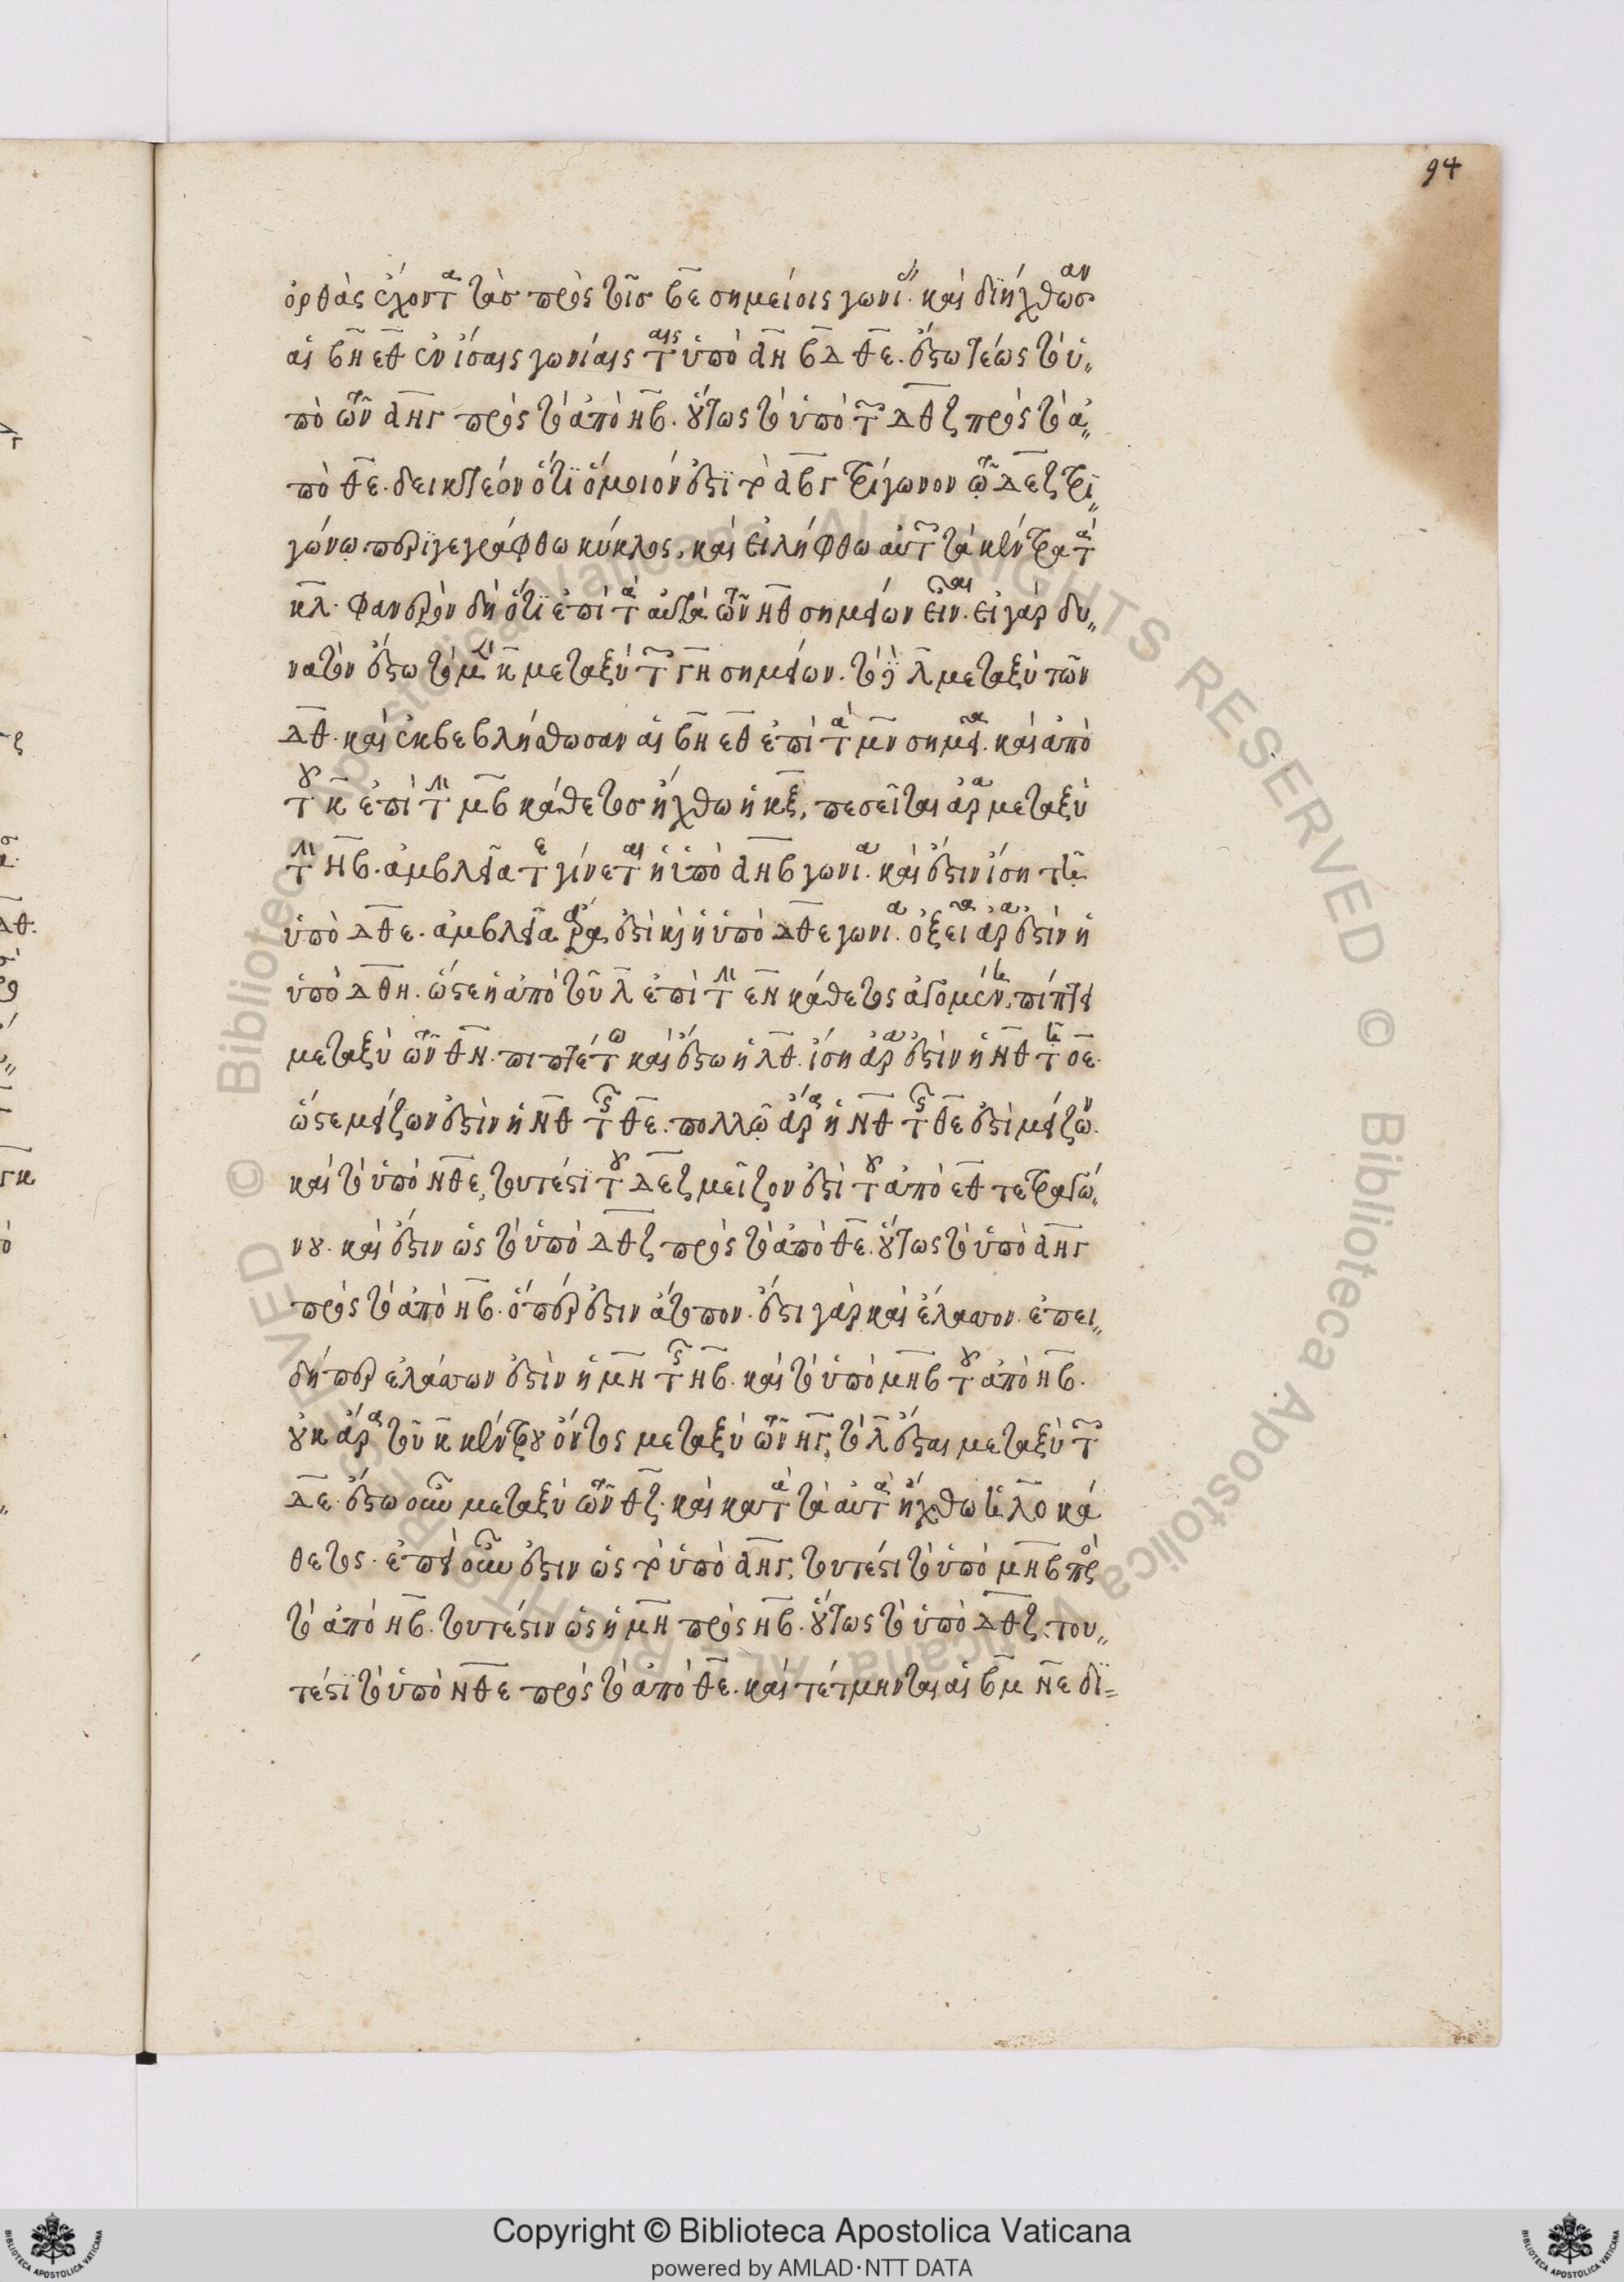 94
ὀρθὰς ἔχοντα τὰσ πρὸς τοῖσ βε σημείοις γωνί. καὶ διήχθωσαν
αἱ βη εθ ἐν ἴσαις γωνίαις ταις ὑπὸ αη β δ θε. ἔστω τέως τὸ ὑ„
πὸ τῶν αηγ πρὸς τὸ ἀπὸ ηβ. οὕτως τὸ ὑπὸ τῶν δθζ πρὸς τὸ ἀ„
πὸ θε. δεικτέον ὅτι ὅμοιόν ἐστι τὸ αβγ τρίγωνον τῶ δεζ τρι„
γώνω. περιγεγράφθω κύκλος, καὶ εἰλήφθω αὐτῶν τὰ κέντρα τὰ
κλ. φανερὸν δὴ ὅτι ἐπὶ τὰ αὐτὰ τῶν ηθ σημείων εἰσιν. εἰ γὰρ δυ„
νατὸν ἔστω τὸ μὲν κ μεταξὺ τῶν γη σημείων. τὸ δὲ λ μεταξὺ τῶν
δθ. καὶ ἐκβεβλήσθωσαν αἱ βη εθ ἐπὶ τὰ μν σημεῖα. καὶ ἀπὸ
του κ ἐπὶ τὴν μβ κάθετοσ ἤχθω ἡ κξ, πεσεῖται ἄρα μεταξὺ
τῆν ηβ. ἀμβλεῖα τε γίνεται ἡ ὑπὸ αηβ γωνία. καὶ ἔστιν ἴση τῆ
ὑπὸ δθε. ἀμβλεῖα ἄρα ἐστὶ καὶ ἡ ὑπὸ δθε γωνία. ὀξεῖα ἄρα ἐστὶν ἡ
ὑπὸ δθη. ὥστε ἡ ἀπὸ τοῦ λ ἐπὶ τὴν εν κάθετος ἀγομένη, πίπτει
μεταξὺ τῶν θν. πιπτέτω καὶ ἔστω ἡ λθ. ἴση ἄρα ἐστὶν ἡ νθ τῆ οε.
ὥστε μείζων ἐστὶν ἡ νθ τῆς θε. πολλῶ ἄρα ἡ νθ τῆς θε ἐστὶ μείζων.
καὶ τὸ ὑπὸ νθε, τουτέστι τοῦ δεζ μεῖζον ἐστὶ τοῦ ἀπὸ εθ τετραγώ„
νου. καὶ ἔστιν ὡς τὸ ὑπὸ δθζ πρὸς τὸ ἀπὸ θε. οὕτως τὸ ὑπὸ αηγ
πρὸς τὸ ἀπὸ ηβ. ὅπερ ἐστιν ἄτοπον. ἔστι γὰρ καὶ ἔλαττον. ἐπει„
δήπερ ἐλάττων ἐστὶν ἡ μη τῆς ηβ. καὶ τὸ ὑπὸ μηβ τοῦ ἀπὸ ηβ.
οὐκ ἄρα τοῦ κ κέντρου ὄντος μεταξὺ τῶν ηγ, τὸ λ ἔσται μεταξὺ τῶν
δε. ἔστω οὖν μεταξὺ τῶν θζ. καὶ κατὰ τὰ αὐτὰ ἤχθω ἡ λο κά
θετος. ἐπεὶ οὖν ἐστιν ὡς τὸ ὑπὸ αηγ, τουτέστι τὸ ὑπὸ μηβ πρὸς
τὸ ἀπὸ ηβ. τουτέστιν ὡς ἡ μη πρὸς ηβ. οὕτως τὸ ὑπὸ δθζ. του„
τέστι τὸ ὑπὸ νθε πρὸς τὸ ἀπὸ θε. καὶ τέτμηνται αἱ βμ νε δί=
Copyright © Biblioteca Apostolica Vaticana
powered by AMLAD·NTT DATA